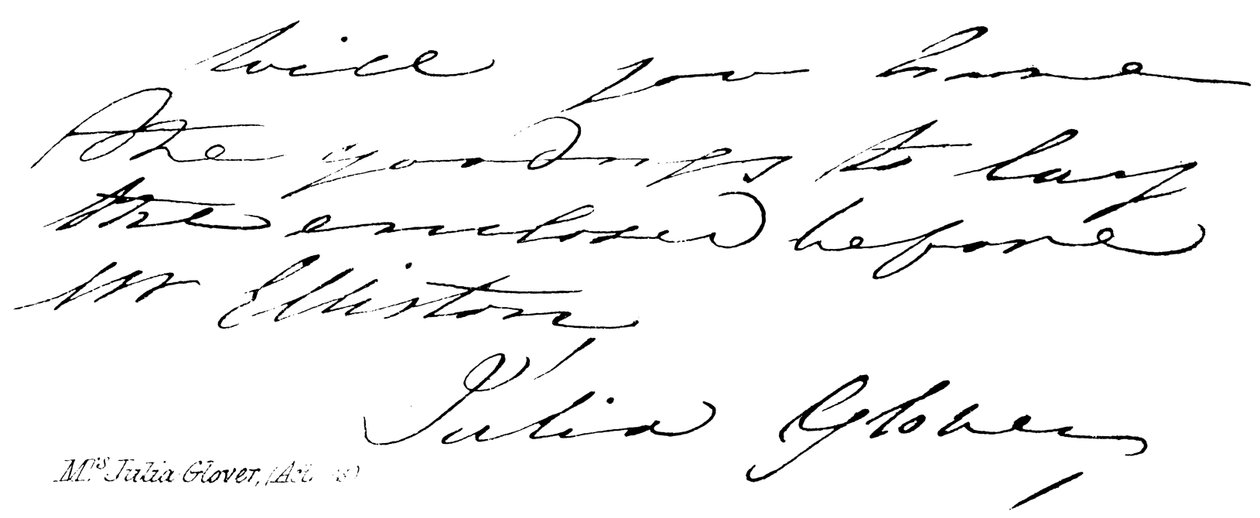 Will you have
the goodness to lay
the enclosed before
Mr Elliston
Julia Glover
Mrs Julia Glover,